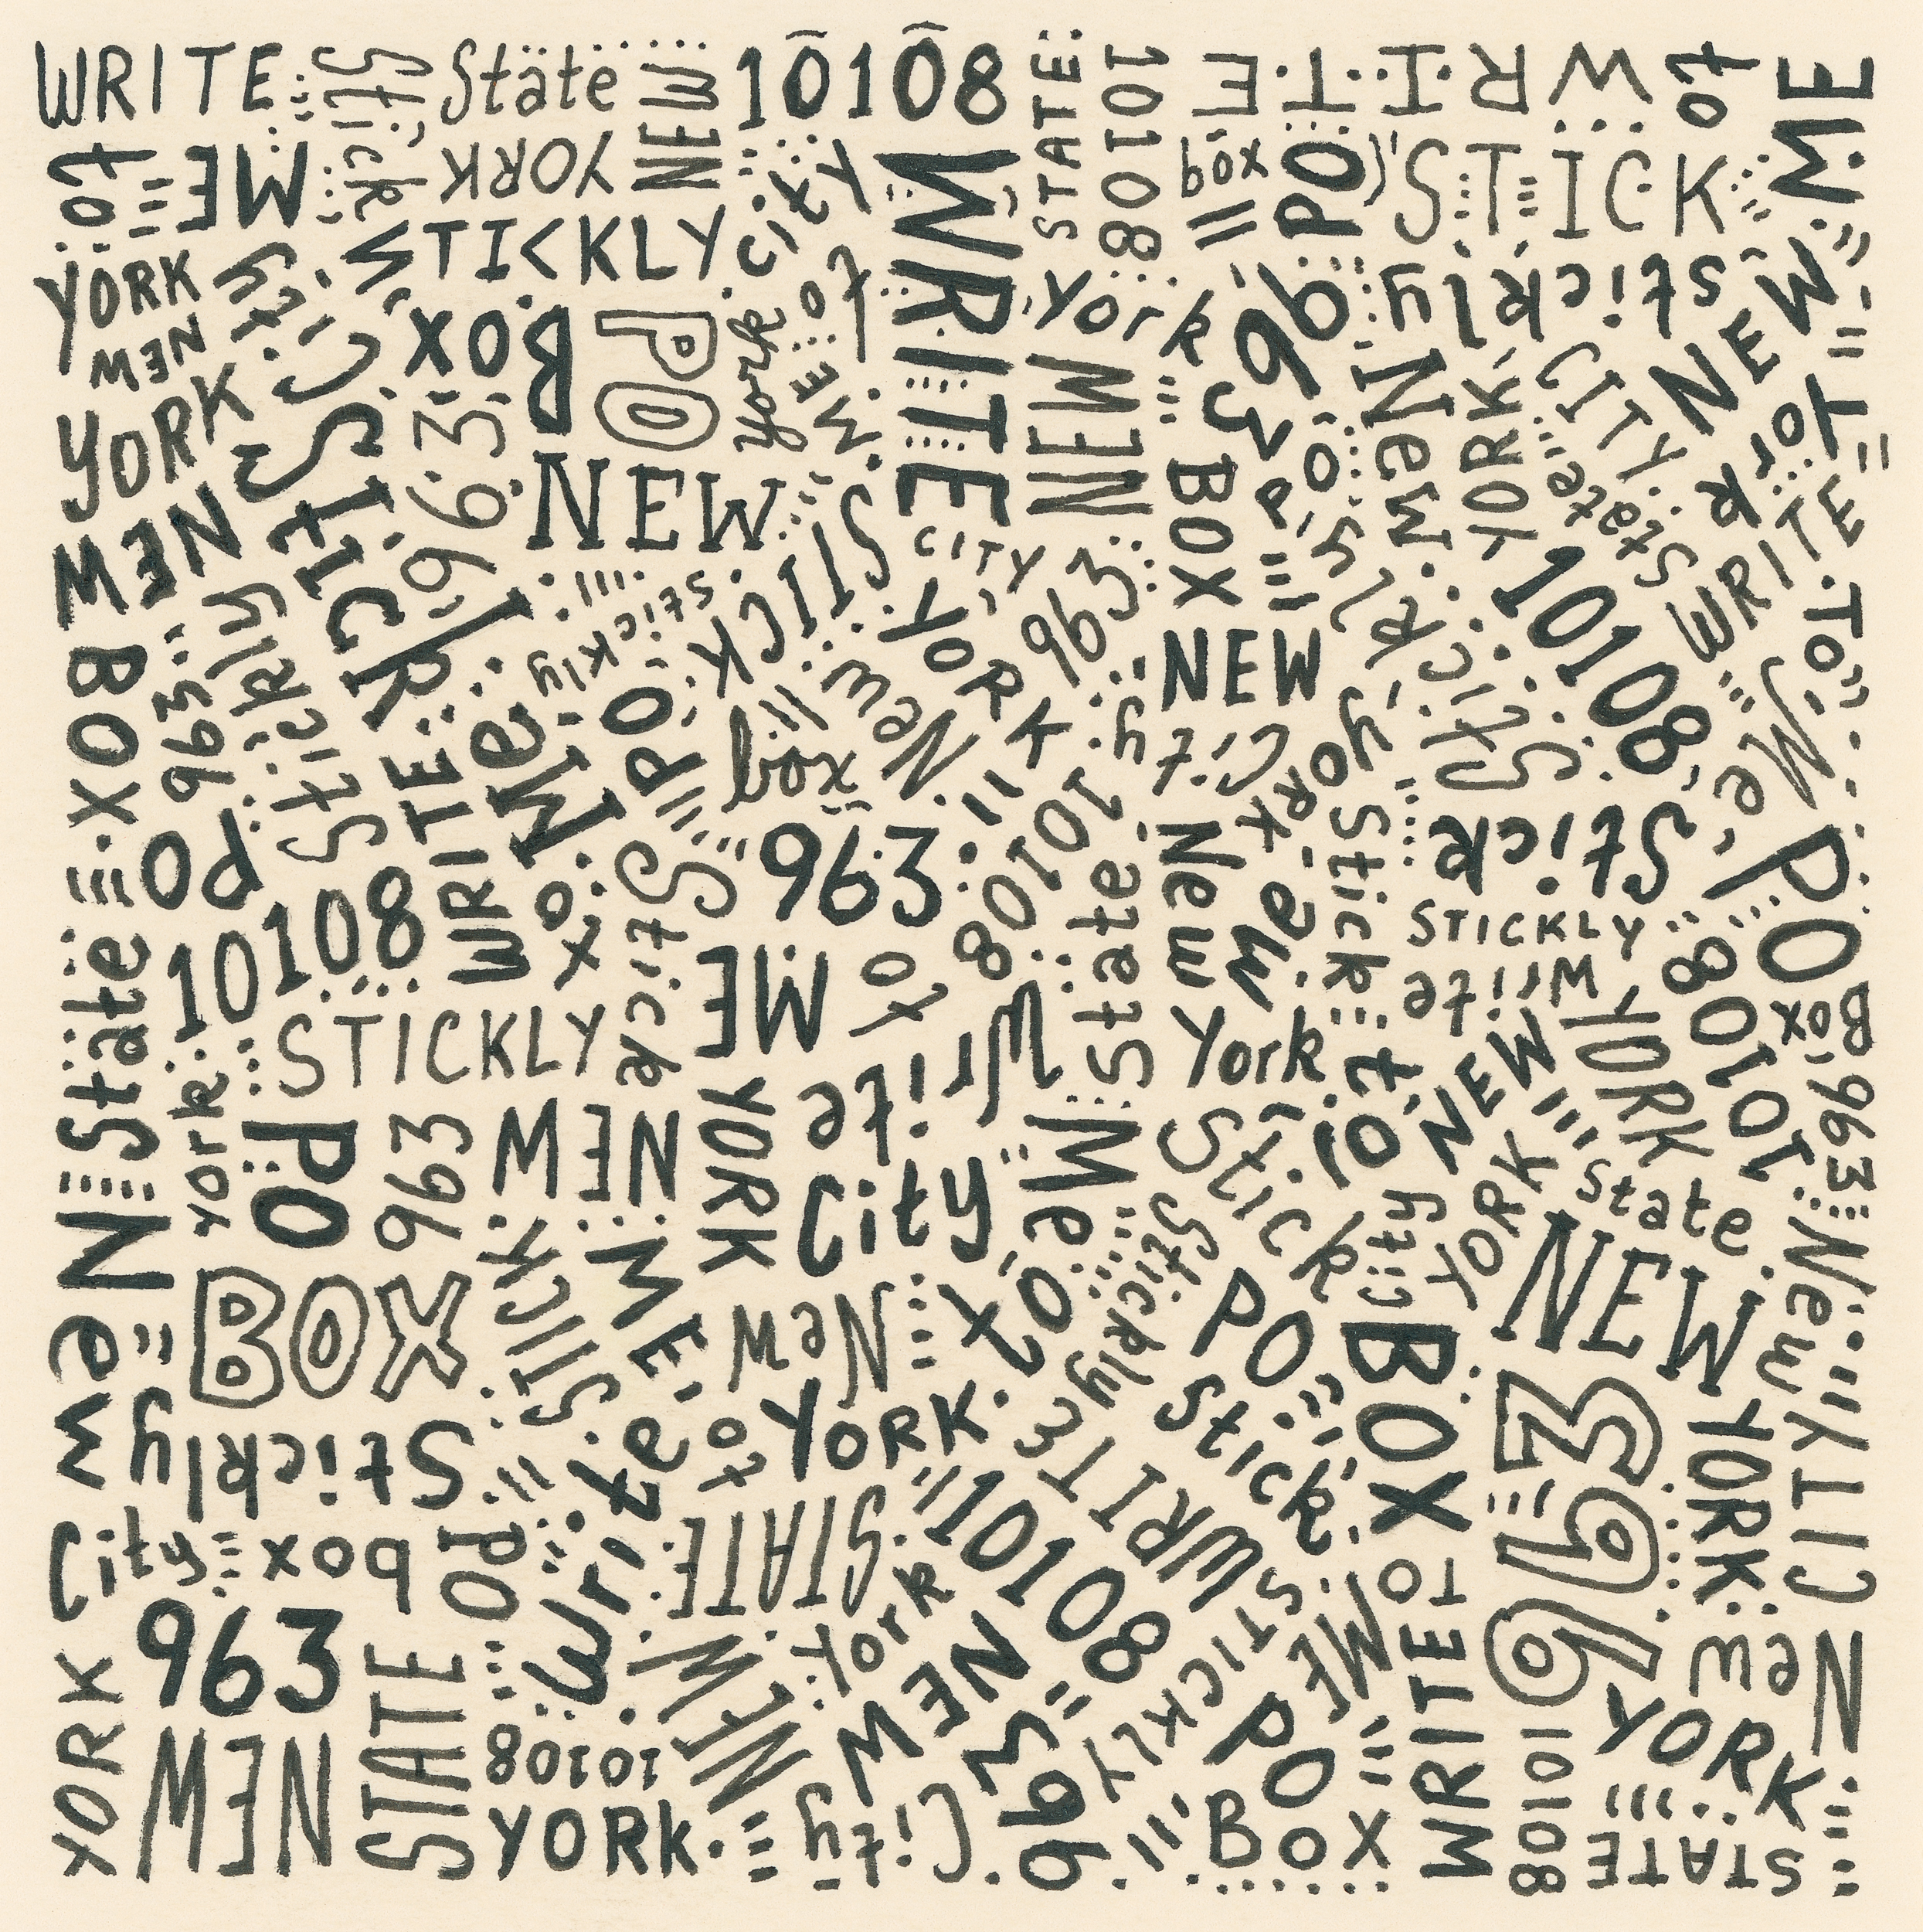 WRITE Stickly State NEW 10108 STATE 10108 WRITE to ME
to ME YORK city WRITE box PO STICK
YORK NEW City STICKLY to York 963 Stickly WRITE
YORK NEW Stick BOX PO York NEW NEW New YORK CITY NEW York
963 NEW STICK CITY PO BOX Stickly State WRITE TO
BOX 963 Stickly Stickly PO New YORK 963 NEW 10108 Me
WRITE Me box City York Stick
PO to Stick 963 10108 State New Me Stick Stick PO
State 10108 ME to STICKLY Write 10108 BOX
york STICKLY Write York to NEW YORK 963
PO 963 NEW YORK City New Stick City YORK State
New BOX STICK ME New to Stickly PO BOX NEW New CITY
Stickly Write to YORK WRITE Stick 963 YORK
City box PO STATE 10108
YORK 963 STATE NEW York NEW STICKLY ME WRITE TO New
NEW 10108 963 PO 10108 YORK
YORK City BOX STATE